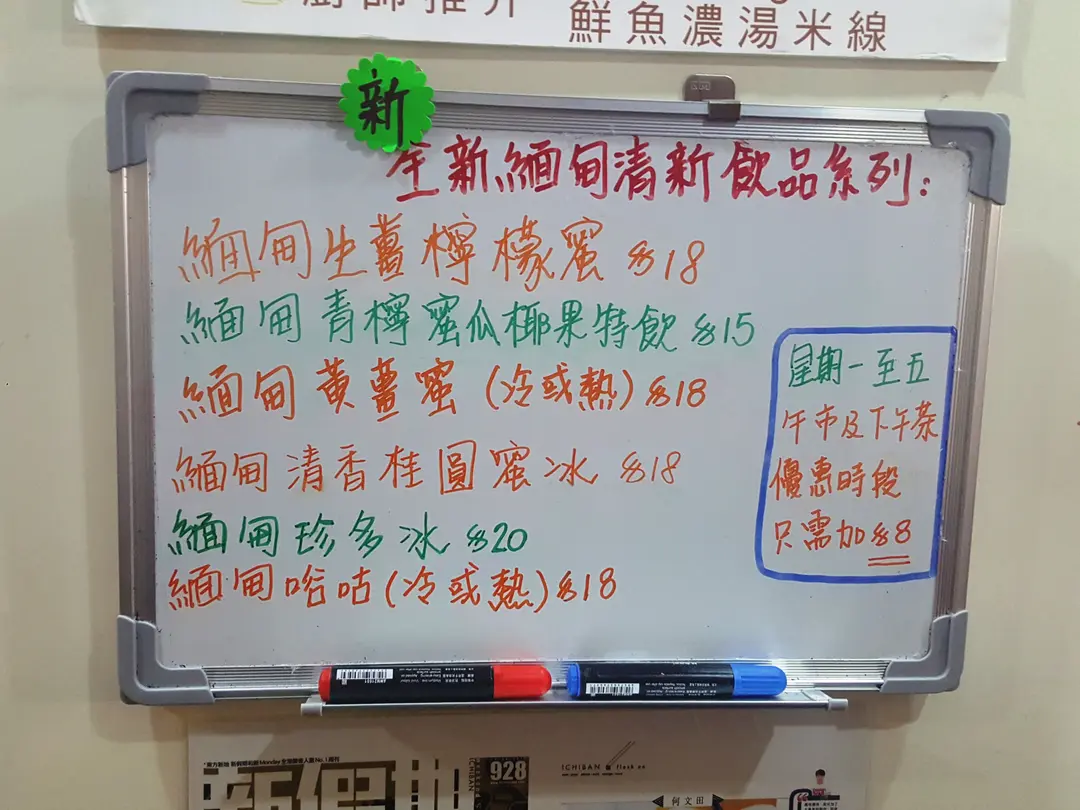 廚師推介
鮮魚濃湯米線
新
全新緬甸清新飲品系列:
緬甸生薑檸檬蜜 $18
緬甸青檸蜜瓜椰果特飲 $15
緬甸黃薑蜜 (冷或熱) $18
緬甸清香桂圓蜜冰 $18
緬甸珍多冰 $20
緬甸哈咕(冷或熱) $18
星期一至五
午市及下午茶
優惠時段
只需加 $8
新假期
928
ICHIBAN
何文田